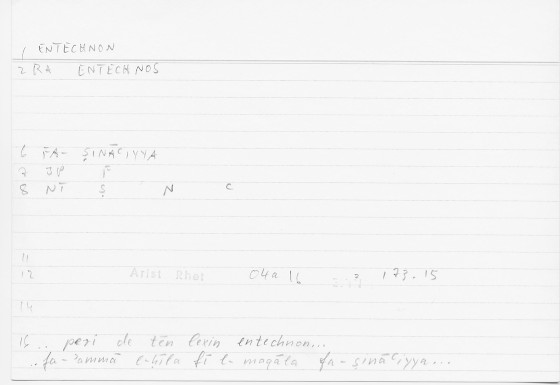 1 ENTECHNON
2 RA ENTECHNOS
6 FA- ṢINĀʿIYYA
7 JP F
8 NT Ṣ N C
11
12 Arist Rhet 04a 16 173.15
14
15 .. peri de tēn lexin entechnon...
.. fa-ʾammā l-ḥīla fī l-maqāla fa-ṣināʿiyya...